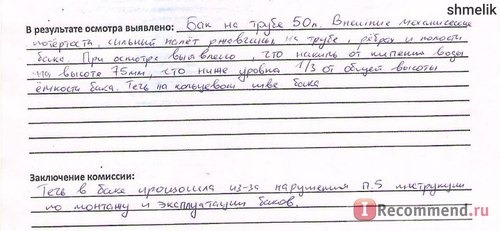 shmelik
В результате осмотра выявлено: Бак на трубе 50л. Внешние механические
потёртости, сильный налёт ржавчины на трубе, рёбрах и полости
бака. При осмотре выявлено, что накипь от кипения воды
на высоте 75мм, что ниже уровня 1/3 от общей высоты
ёмкости бака. Течь на кольцевом шве бака
Заключение комиссии:
Течь в баке произошла из-за нарушения п.5 инструкции
по монтажу и эксплуатации баков.
IRecommend.ru